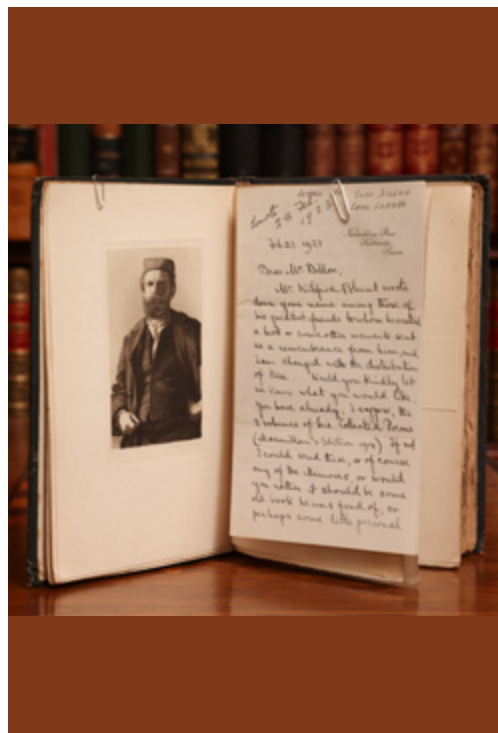 Feb. 23. 1923
Dear Mr. Dillon,
Mr. Wilfrid Blunt wrote
down your name among those of
his greatest friends to whom he wished
a book or some other memento sent
as a remembrance from him, and
I am charged with the distribution
of these. Would you kindly let
me know what you would like.
You have already, I suppose, the
2 volumes of his Collected Poems
(Macmillan's Edition 1914) If not
I could send these, or of course
any of the Memoirs, or would
you rather it should be some
old book he was fond of, or
perhaps some little personal